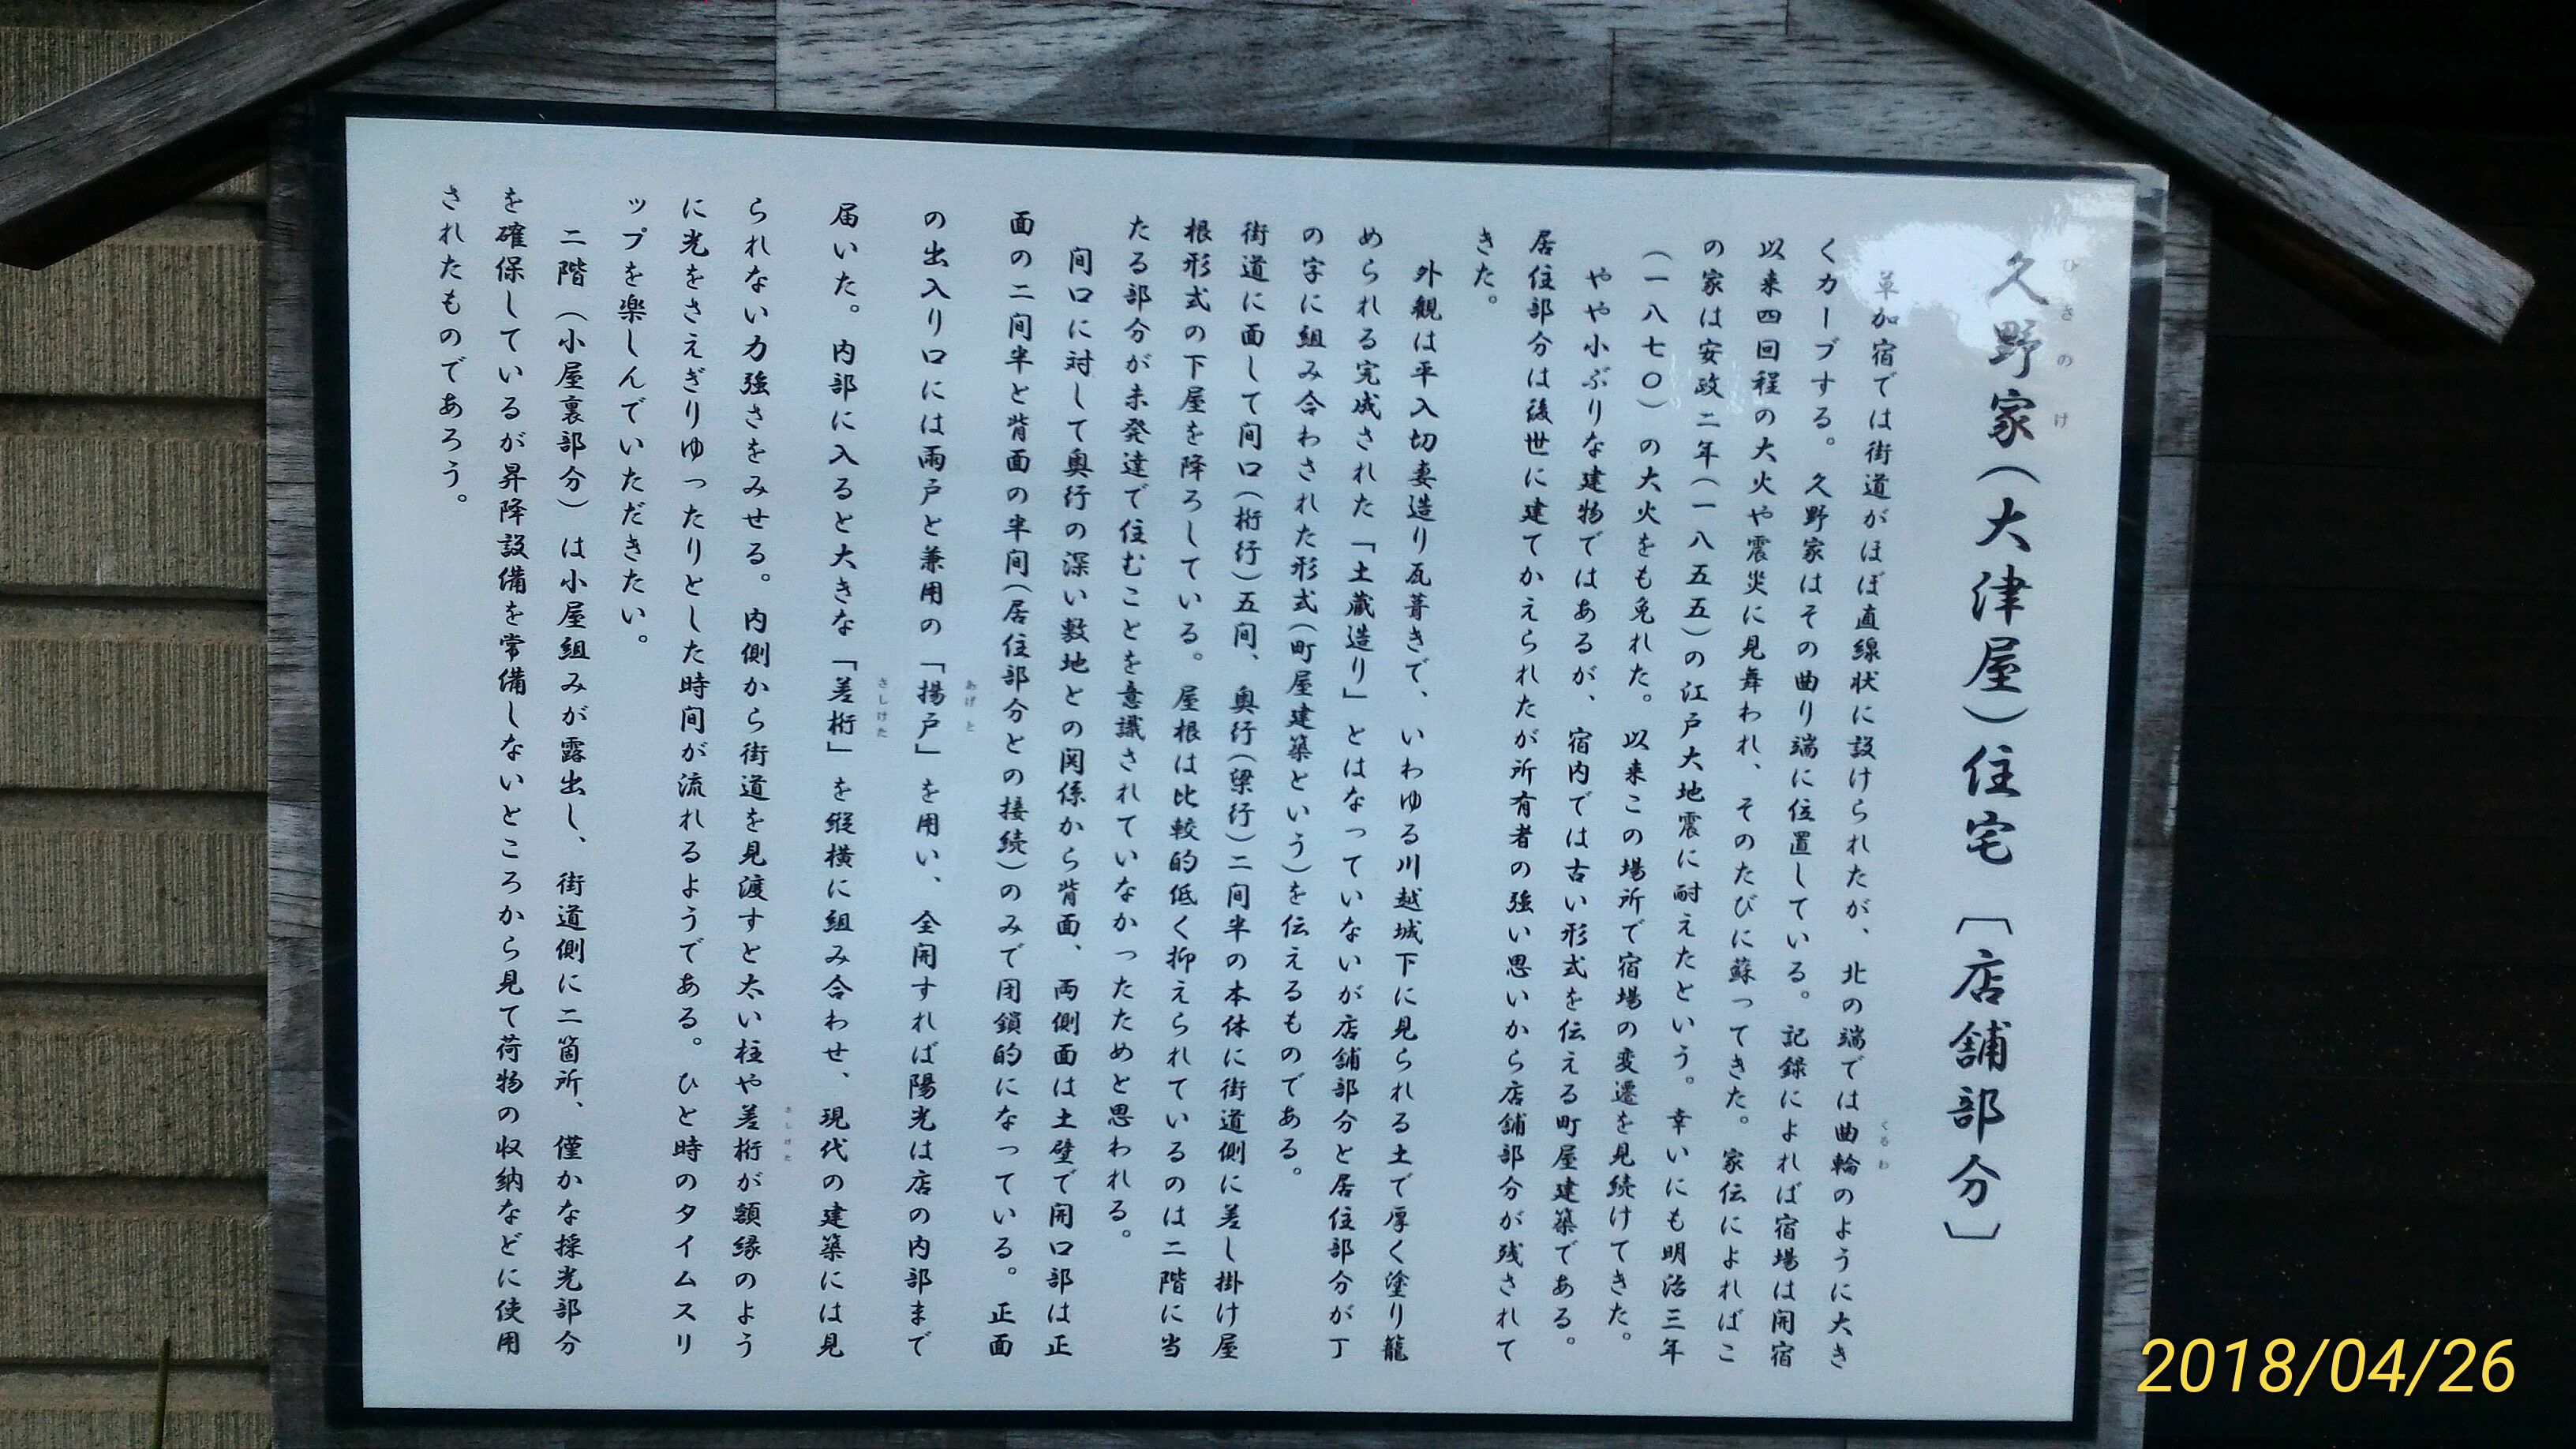 久野家(大津屋)住宅〔店舗部分〕
ひさのけ
草加宿では街道がほぼ直線状に設けられたが、北の端では曲輪のように大き
くるわ
くカーブする。久野家はその曲り端に位置している。記録によれば宿場は開宿
以来四回程の大火や震災に見舞われ、そのたびに蘇ってきた。家伝によればこ
の家は安政二年(一八五五)の江戸大地震に耐えたという。幸いにも明治三年
(一八七〇)の大火をも免れた。以来この場所で宿場の変遷を見続けてきた。
やや小ぶりな建物ではあるが、宿内では古い形式を伝える町屋建築である。
居住部分は後世に建てかえられたが所有者の強い思いから店舗部分が残されて
きた。
外観は平入切妻造り瓦葺きで、いわゆる川越城下に見られる土で厚く塗り籠
められる完成された「土蔵造り」とはなっていないが店舗部分と居住部分が丁
の字に組み合わされた形式(町屋建築という)を伝えるものである。
街道に面して間口(桁行)五間、奥行(梁行)二間半の本体に街道側に差し掛け屋
根形式の下屋を降ろしている。屋根は比較的低く抑えられているのは二階に当
たる部分が未発達で住むことを意識されていなかったためと思われる。
間口に対して奥行の深い敷地との関係から背面、両側面は土壁で開口部は正
面の二間半と背面の半間(居住部分との接続)のみで閉鎖的になっている。正面
の出入り口には雨戸と兼用の「揚戸」を用い、全開すれば陽光は店の内部まで
あげと
届いた。内部に入ると大きな「差桁」を縦横に組み合わせ、現代の建築には見
さしけた
られない力強さをみせる。内側から街道を見渡すと太い柱や差桁が額縁のよう
さしけた
に光をさえぎりゆったりとした時間が流れるようである。ひと時のタイムスリ
ップを楽しんでいただきたい。
二階(小屋裏部分)は小屋組みが露出し、街道側に二箇所、僅かな採光部分
を確保しているが昇降設備を常備しないところから見て荷物の収納などに使用
されたものであろう。
2018/04/26